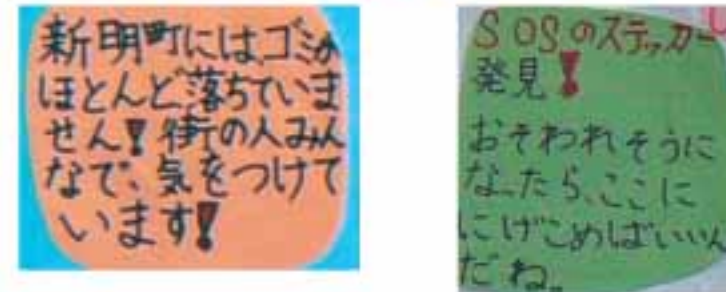 新明町には、ゴミが
ほとんど落ちていま
せん!街の人みん
なで、気をつけて
います!
SOSのステッカー
発見!
おそわれそうに
なったら、ここに
にげこめばいいん
だね。